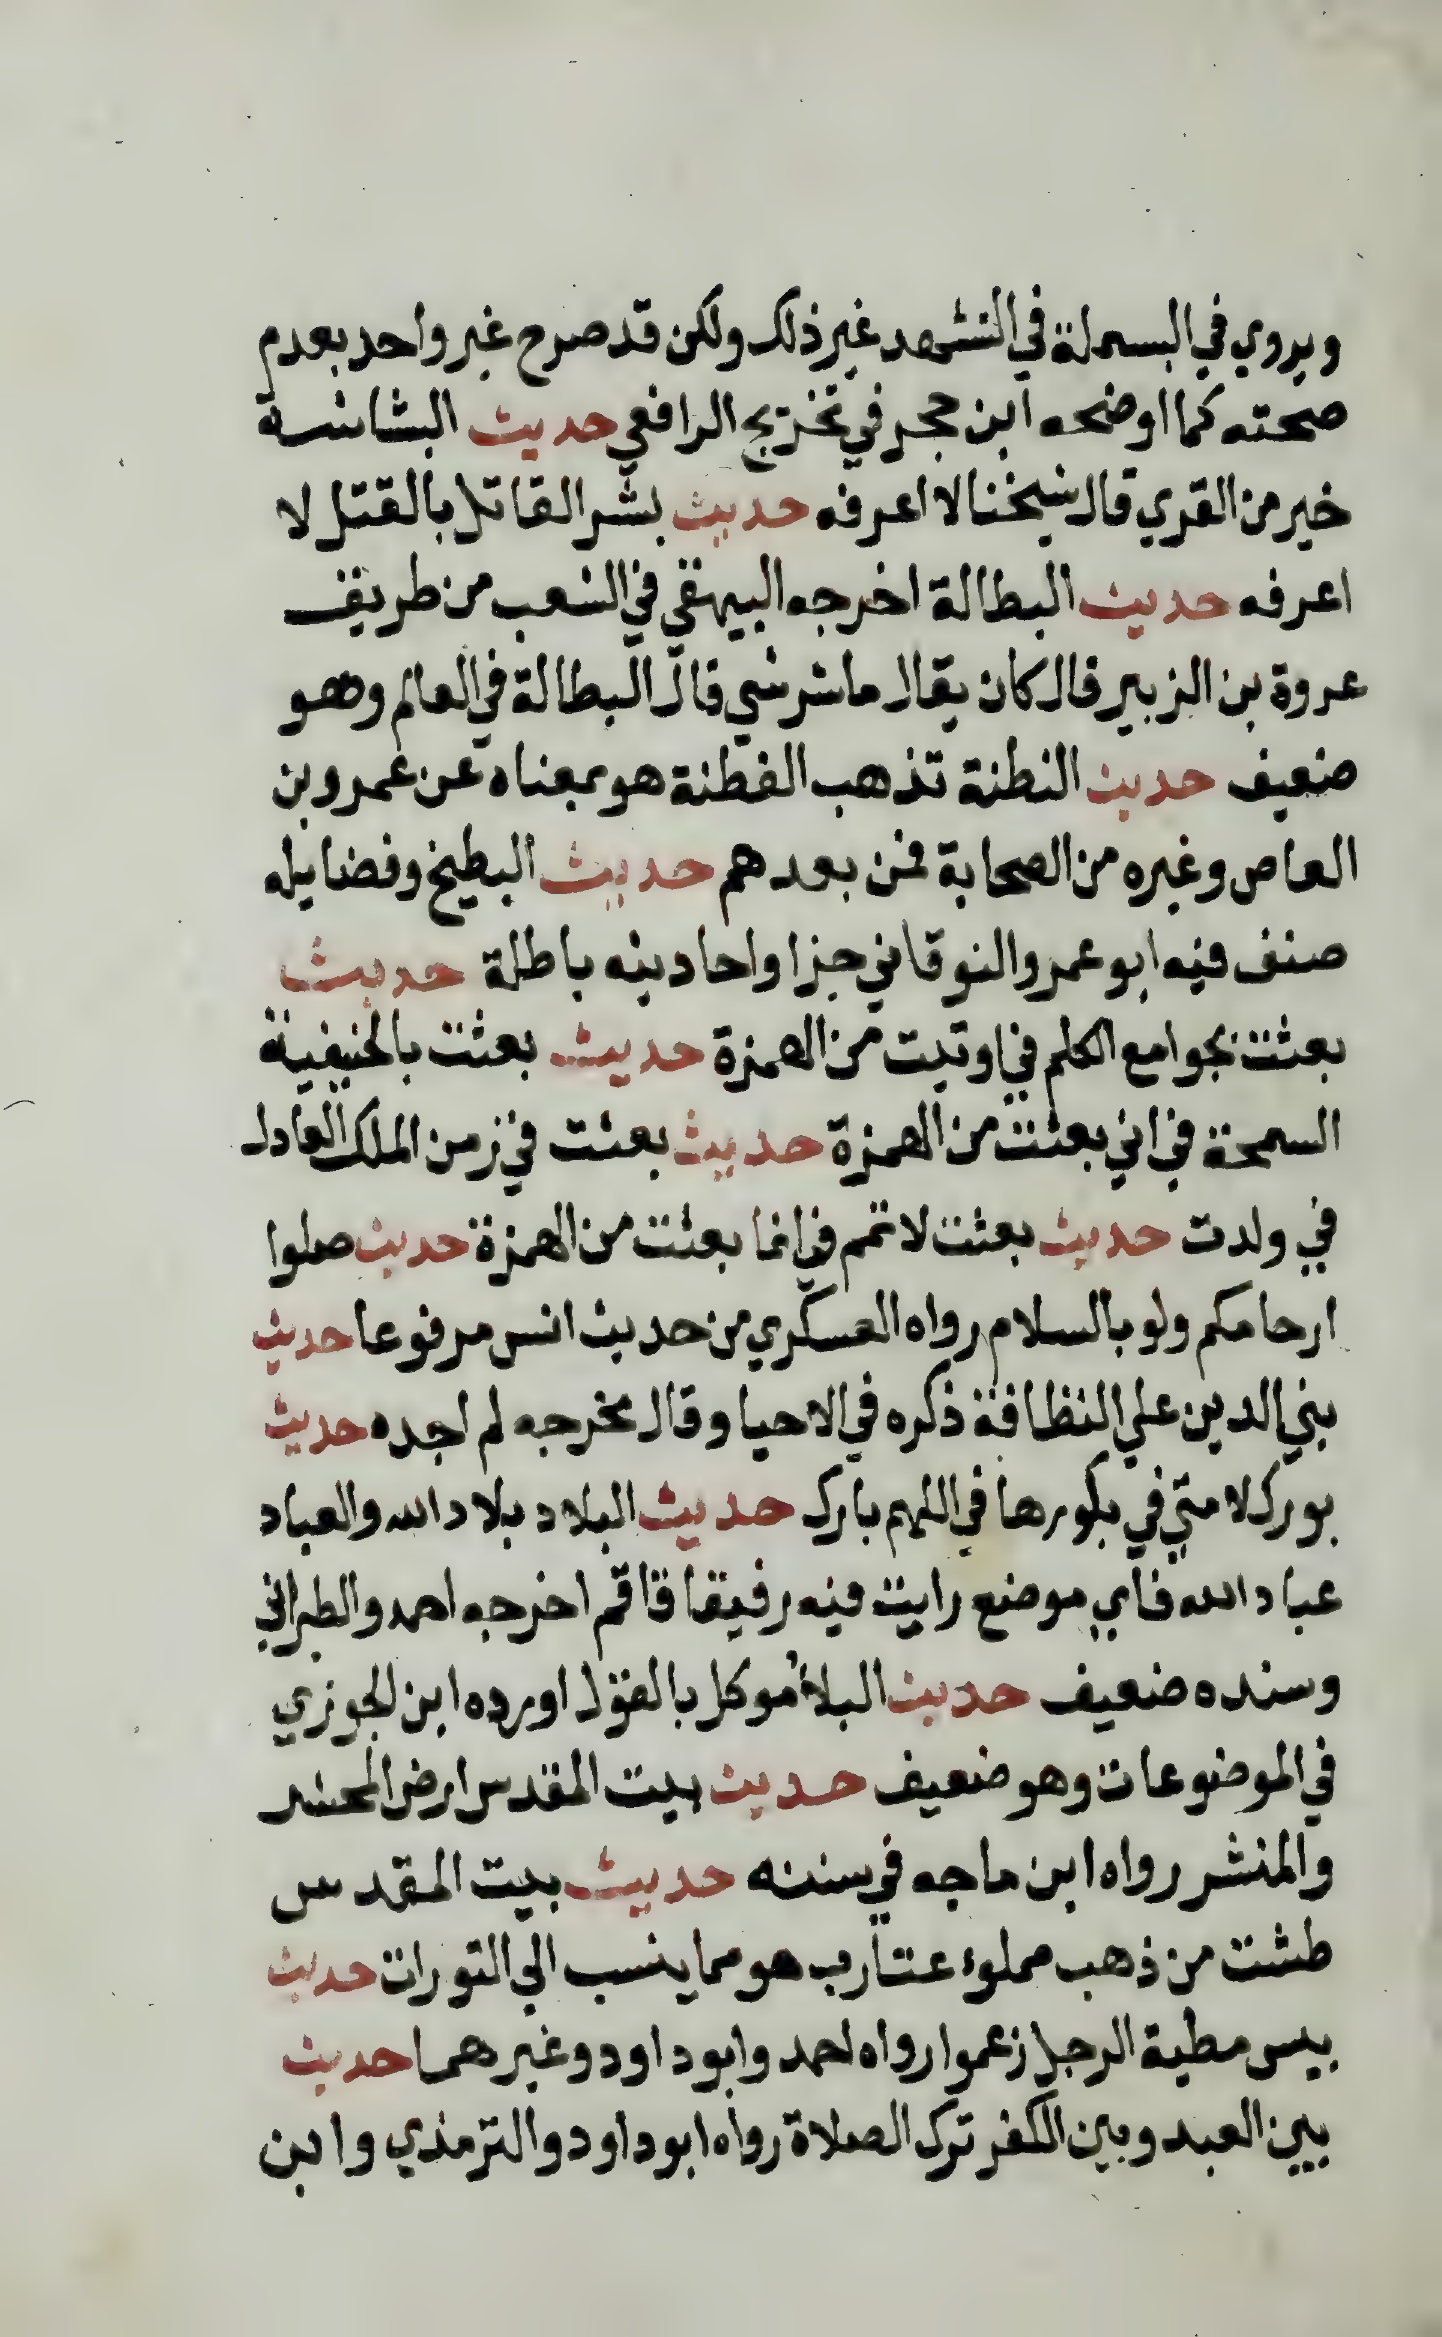 ويروي في البسملة في التشهد غير ذلك ولكن قد صرح غير واحد بعدم
صحته كما اوضحه ابن حجر في تخريج الرافعي حديث البشاشة
خير من القري قال شيخنا لا اعرفه حديث بشر القاتل بالقتل لا
اعرفه حديث البطالة اخرجه البيهقي في الشعب من طريق
عروة بن الزبير قال كان يقال ما شر شي قال البطالة في العالم وهو
ضعيف حديث البطنة تذهب الفطنة هو بمعناه عن عمرو بن
العاص وغيره من الصحابة فمن بعدهم حديث البطيخ وفضايله
صنف فيه ابو عمرو النوقاني جزا واحاديثه باطلة حديث
بعثت بجوامع الكلم في اوتيت من الهمزة حديث بعثت بالحنيفية
السمحة في اني بعثت من الهمزة حديث بعثت في زمن الملك العادل
في ولدت حديث بعثت لاتمم في انما بعثت من الهمزة حديث صلوا
ارحامكم ولو بالسلام رواه العسكري من حديث انس مرفوعا حديث
بني الدين علي النظافة ذكره في الاحيا وقال مخرجه لم اجده حديث
بورك لامتي في بكورها في اللهم بارك حديث البلاد بلاد الله والعباد
عباد الله فاي موضع رايت فيه رفيقا فاقم اخرجه احمد والطبراني
وسنده ضعيف حديث البلاُ موكل بالقول اورده ابن الجوزي
في الموضوعات وهو ضعيف حديث بيت المقدس ارض المحشر
والمنشر رواه ابن ماجه في سننه حديث بيت المقدس
طشت من ذهب مملوء عقارب هو مما ينسب الي التورات حديث
بيس مطية الرجل زعموا رواه احمد وابو داود وغيرهما حديث
بين العبد وبين الكفر ترك الصلاة رواه ابو داود والترمذي وابن